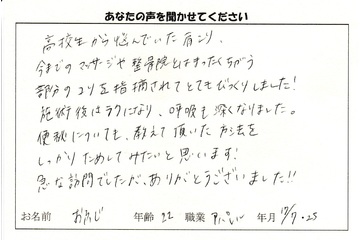 あなたの声を聞かせてください
高校生から悩んでいた肩こり、
今までのマッサージや整骨院とはまったくちがう
部分のコリを指摘されてとてもびっくりしました!
施術後はラクになり、呼吸も深くなりました。
便秘についても、教えて頂いた方法を
しっかりためしてみたいと思います!
急な訪問でしたが、ありがとうございました!!
お名前 年齢 22 職業 アパレル 年月